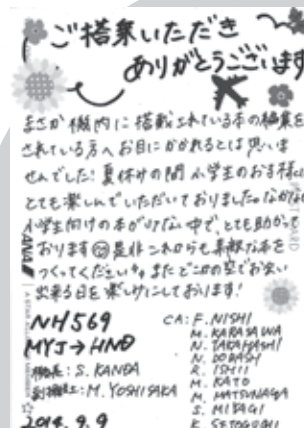 ご搭乗いただき
ありがとうございます
まさか機内に搭載されている本の編集を
されている方へお目にかかれるとは思いま
せんでした！夏休みの間 小学生のお子様に
とても楽しんでいただいておりました。なかなか
小学生向けの本が少ない中で、とても助かって
おります 是非これからも素敵な本を
つくってください。またどこかの空でお会い
出来る日を楽しみにしております！
NH569
MYJ→HND
機長：S. KANDA
副操縦士：M. YOSHISAKA
2014. 9. 9
CA：F. NISHI
M. KARASAWA
N. TAKAHASHI
N. DOBASHI
R. ISHII
M. KATO
M. MATSUNAGA
S. MIYAGI
K. SETOGUCHI
ANA